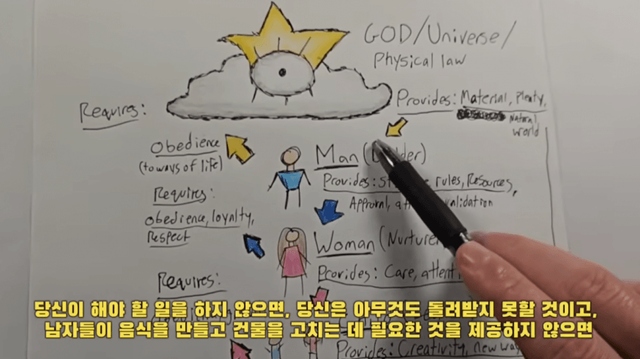 GOD/Universe/
Physical law
Requires:
Provides: Material, Plenty,
Natural
world
Obedience
(to ways of life)
Man (
der)
Provides: St
rules, Resources,
Approval,
validation
Requires:
Obedience, loyalty,
Respect
Woman (Nurture
Provides: Care, attenti
Requires:
당신이 해야 할 일을 하지 않으면, 당신은 아무것도 돌려받지 못할 것이고,
남자들이 음식을 만들고 건물을 고치는 데 필요한 것을 제공하지 않으면
Provides: Creativity, new